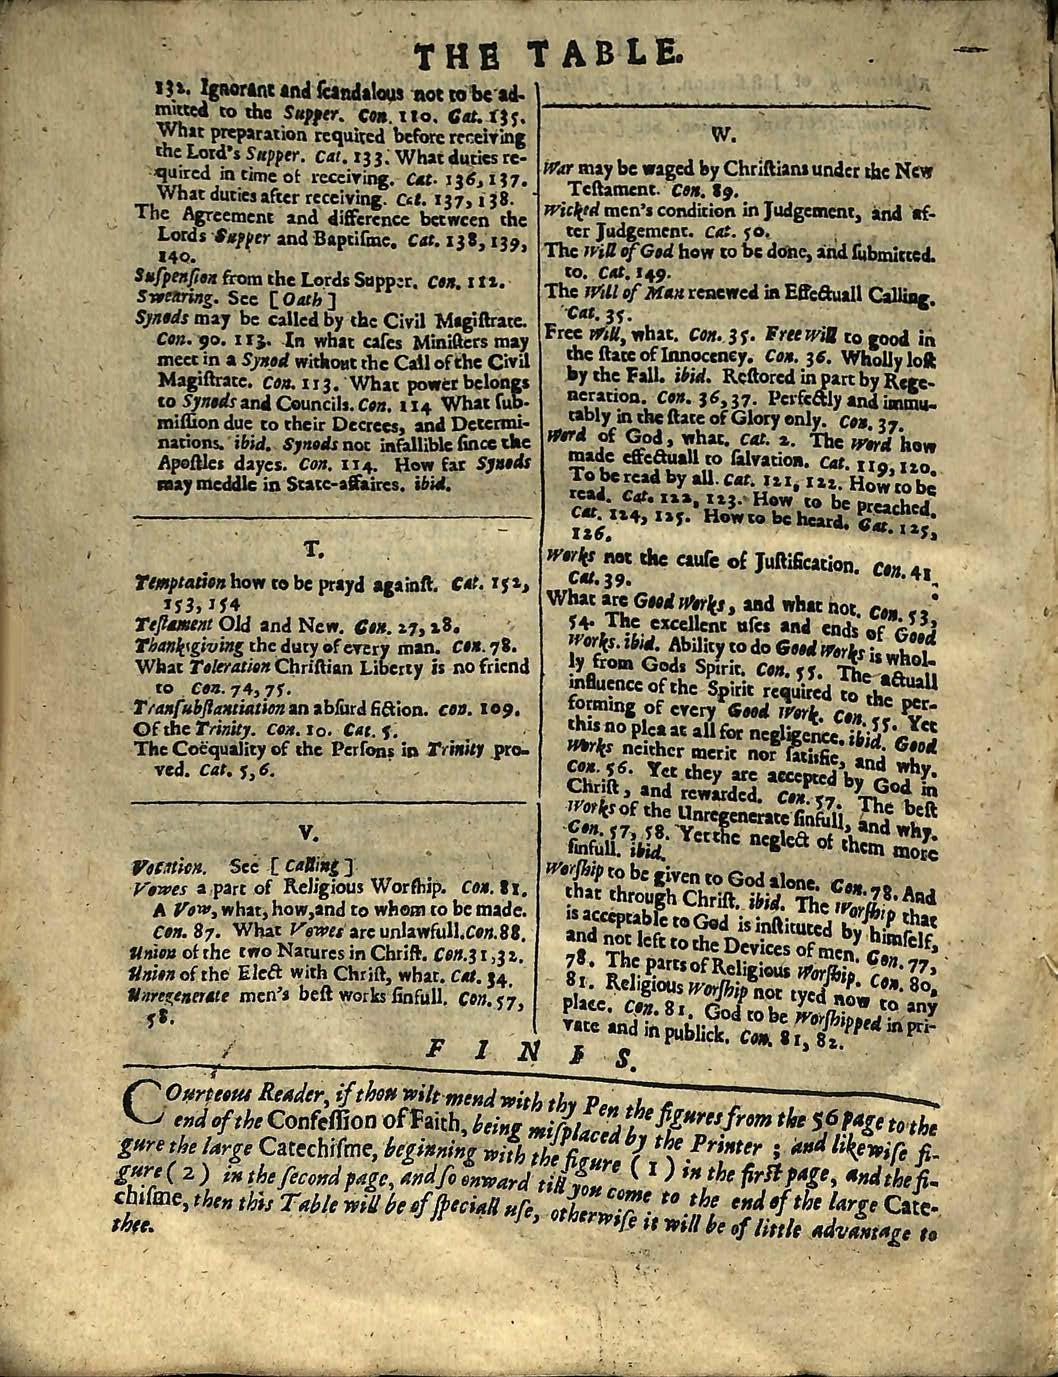 THE TABLE.
132. Ignorant and ſcandalous not to be ad-
mitted to the Supper. Con. 110. Cat. 135.
What preparation required before receiving
the Lord's Supper. Cat. 133. What duties re-
quired in time of receiving. Cat. 136, 137.
What duties after receiving. Cat. 137, 138.
The Agreement and difference between the
Lords Supper and Baptiſme. Cat. 138, 139,
140.
Suſpenſion from the Lords Supper. Con. 112.
Swearing. See [Oath]
Synods may be called by the Civil Magiſtrate.
Con. 90. 113. In what caſes Miniſters may
meet in a Synod without the Call of the Civil
Magiſtrate. Con. 113. What power belongs
to Synods and Councils. Con. 114 What ſub-
miſſion due to their Decrees, and Determi-
nations. ibid. Synods not infallible ſince the
Apoſtles dayes. Con. 114. How far Synods
may meddle in State-affaires. ibid.
T.
Temptation how to be prayd againſt. Cat. 152,
153, 154
Teſtament Old and New. Con. 27, 28.
Thankſgiving the duty of every man. Con. 78.
What Toleration Chriſtian Liberty is no friend
to Con. 74, 75.
Tranſubſtantiation an abſurd fiction. Con. 109.
Of the Trinity. Con. 10. Cat. 5.
The Coëquality of the Perſons in Trinity pro-
ved. Cat. 5, 6.
V.
Vocation. See [Calling]
Vowes a part of Religious Worſhip. Con. 81.
A Vow, what, how, and to whom to be made.
Con. 87. What Vowes are unlawfull. Con. 88.
Union of the two Natures in Chriſt. Con. 31, 32.
Union of the Elect with Chriſt, what. Cat. 34.
Unregenerate men's beſt works ſinfull. Con. 57,
58.
W.
War may be waged by Chriſtians under the New
Teſtament. Con. 89.
Wicked men's condition in Judgement, and af-
ter Judgement. Cat. 50.
The Will of God how to be done, and ſubmitted.
to. Cat. 149.
The Will of Man renewed in Effectuall Calling.
Cat. 35.
Free Will, what. Con. 35. Free Will to good in
the ſtate of Innocency. Con. 36. Wholly loſt
by the Fall. ibid. Reſtored in part by Rege-
neration. Con. 36, 37. Perfectly and immu-
tably in the ſtate of Glory only. Con. 37.
Word of God, what. Cat. 2. The Word how
made effectuall to ſalvation. Cat. 119, 120.
To be read by all. Cat. 121, 122. How to be
read. Cat. 122, 123. How to be preached.
Cat. 124, 125. How to be heard. Cat. 125,
126.
Works not the cauſe of Juſtification. Con. 41.
Cat. 39.
What are Good Works, and what not. Con. 53,
54. The excellent uſes and ends of Good
Works. ibid. Ability to do Good Works is whol-
ly from Gods Spirit. Con. 55. The actuall
influence of the Spirit required to the per-
forming of every Good Work. Con. 55. Yet
this no plea at all for negligence. ibid. Good
Works neither merit nor ſatisfie, and why.
Con. 56. Yet they are accepted by God in
Chriſt, and rewarded. Con. 57. The beſt
Works of the Unregenerate ſinfull, and why.
Con. 57, 58. Yet the neglect of them more
ſinfull. ibid.
Worſhip to be given to God alone. Con. 78. And
that through Chriſt. ibid. The Worſhip that
is acceptable to God is inſtituted by himſelf,
and not left to the Devices of men. Con. 77,
78. The parts of Religious Worſhip. Con. 80,
81. Religious Worſhip not tyed now to any
place. Con. 81. God to be Worſhipped in pri-
vate and in publick. Con. 81, 82.
FINIS.
COurteous Reader, if thou wilt mend with thy Pen the figures from the 56 page to the
end of the Confeſſion of Faith, being miſplaced by the Printer; and likewiſe fi-
gure the large Catechiſme, beginning with the figure (1) in the firſt page, and the fi-
gure (2) in the ſecond page, and ſo onward till you come to the end of the large Cate-
chiſme, then this Table will be of ſpeciall uſe, otherwiſe it will be of little advantage to
thee.